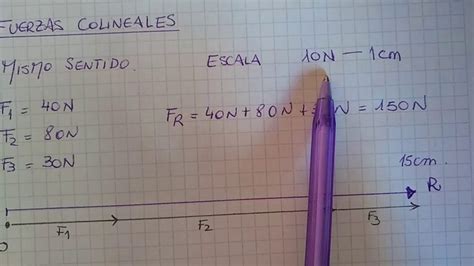 FUERZAS COLINEALES
MISMO SENTIDO. ESCALA 10N — 1cm
F₁ = 40N
F₂ = 80N
F₃ = 30N
F_R = 40N + 80N + N = 150N
15cm.
R
0 F₁ F₂ F₃